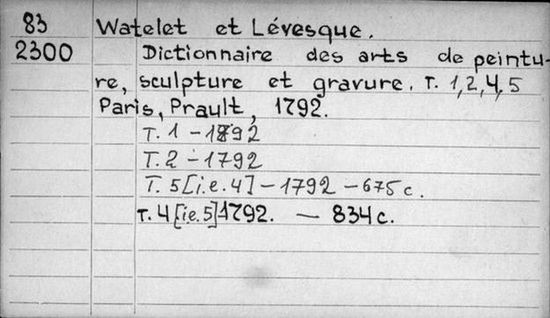 83 Watelet et Lévesque.
2300 Dictionnaire des arts de peintu-
re, sculpture et gravure. T. 1,2,4,5
Paris, Prault, 1792.
T. 1 - 1792
T. 2 - 1792
T. 5 [i.e. 4] - 1792 - 675 c.
т. 4 [ie. 5] 1792. - 834 c.